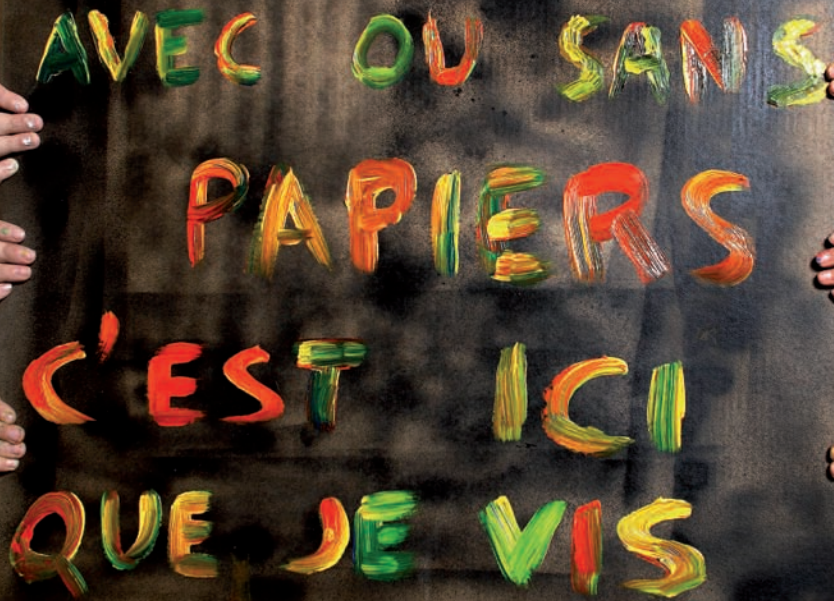 AVEC OU SANS
PAPIERS
C'EST ICI
QUE JE VIS